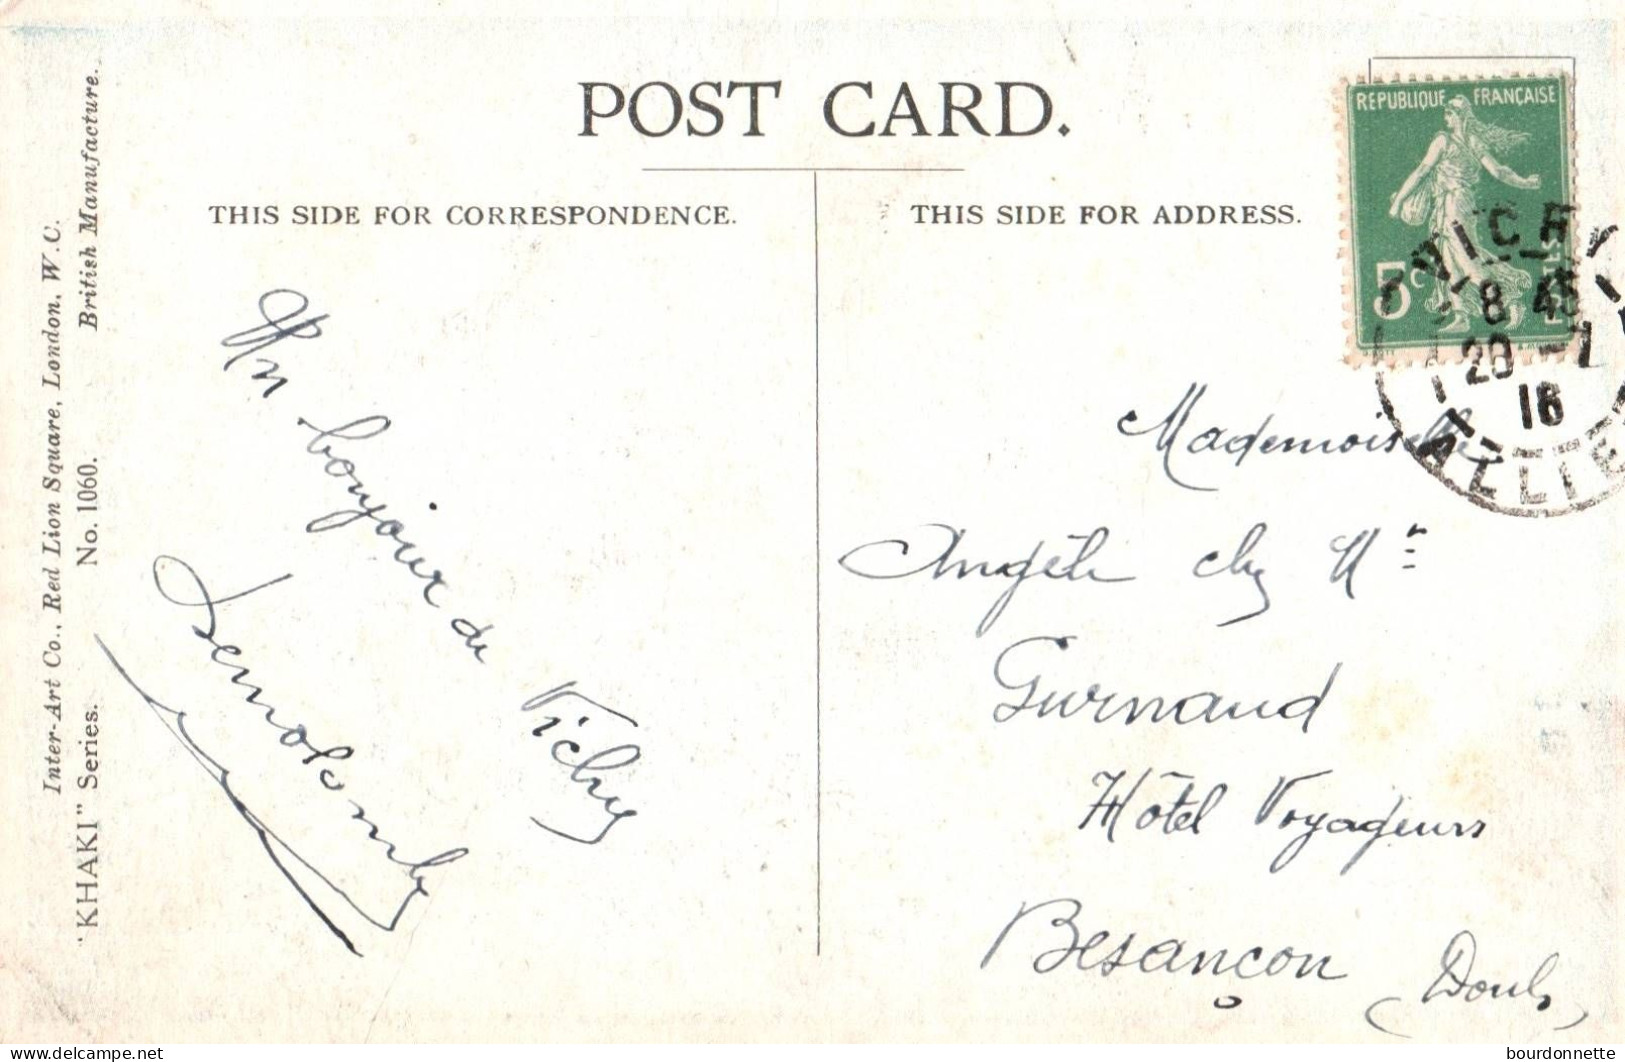 POST CARD.
THIS SIDE FOR CORRESPONDENCE.
THIS SIDE FOR ADDRESS.
Inter-Art Co., Red Lion Square, London, W.C.
British Manufacture.
"KHAKI" Series. No. 1060.
REPUBLIQUE FRANÇAISE
5c
POSTES
VICHY
8 45
20 -1
16
ALLIE
Un bonjour de
Vichy
Mademoiselle
Angèle chez Mr
Gurnaud
Hôtel Voyageurs
Besançon
(Doubs)
bourdonnette